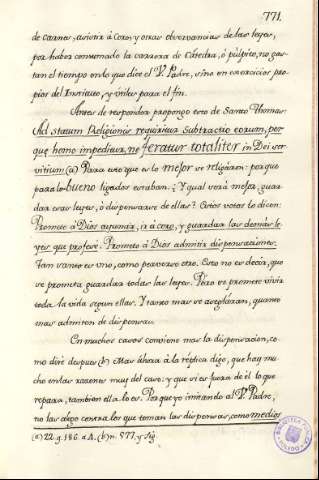 771.
de carnes, assistir á Coro, y otras observancias de las leyes,
por haber consumado la carrera de Cátedra, ó púlpito, no gas-
tan el tiempo en lo que dice el V. Padre, sino en exercicios pro-
pios del Instituto, y utiles para el fin.
Antes de responder propongo esto de Santo Thomas:
Ad statum Religionis requiritur subtractio eorum, per
quæ homo impeditur, ne feratur totaliter in Dei ser-
vitium (a) Para esto que es lo mejor se religáron: porque
para lo bueno ligados estaban. ¿Y qual será mejor, guar-
dar esas leyes, ó dispensarse de ellas? Estos votos lo dicen:
Prometo á Dios ayunar, ir á coro, y guardar las demás le-
yes que profesé. Prometo á Dios admitir dispensaciones.
Tan santo es uno, como perverso otro. Esto no es decir, que
se prometa guardar todas las leyes. Pero se promete vivir
toda la vida segun ellas. Y tanto mas se arreglaran, quanto
mas admiten de dispensas.
En muchos casos conviene mas la dispensacion, co-
mo diré despues (b) Mas áhora á la réplica digo, que hay mu-
cho en las razones muy del caso: y que si es fuera de él lo que
repara, tambien ella lo es. Porque yo imitando al V. Padre,
no las alego contra los que toman las dispensas, como medios
(a) 22. q. 186. a. 4. (b) n. 577. y sig.